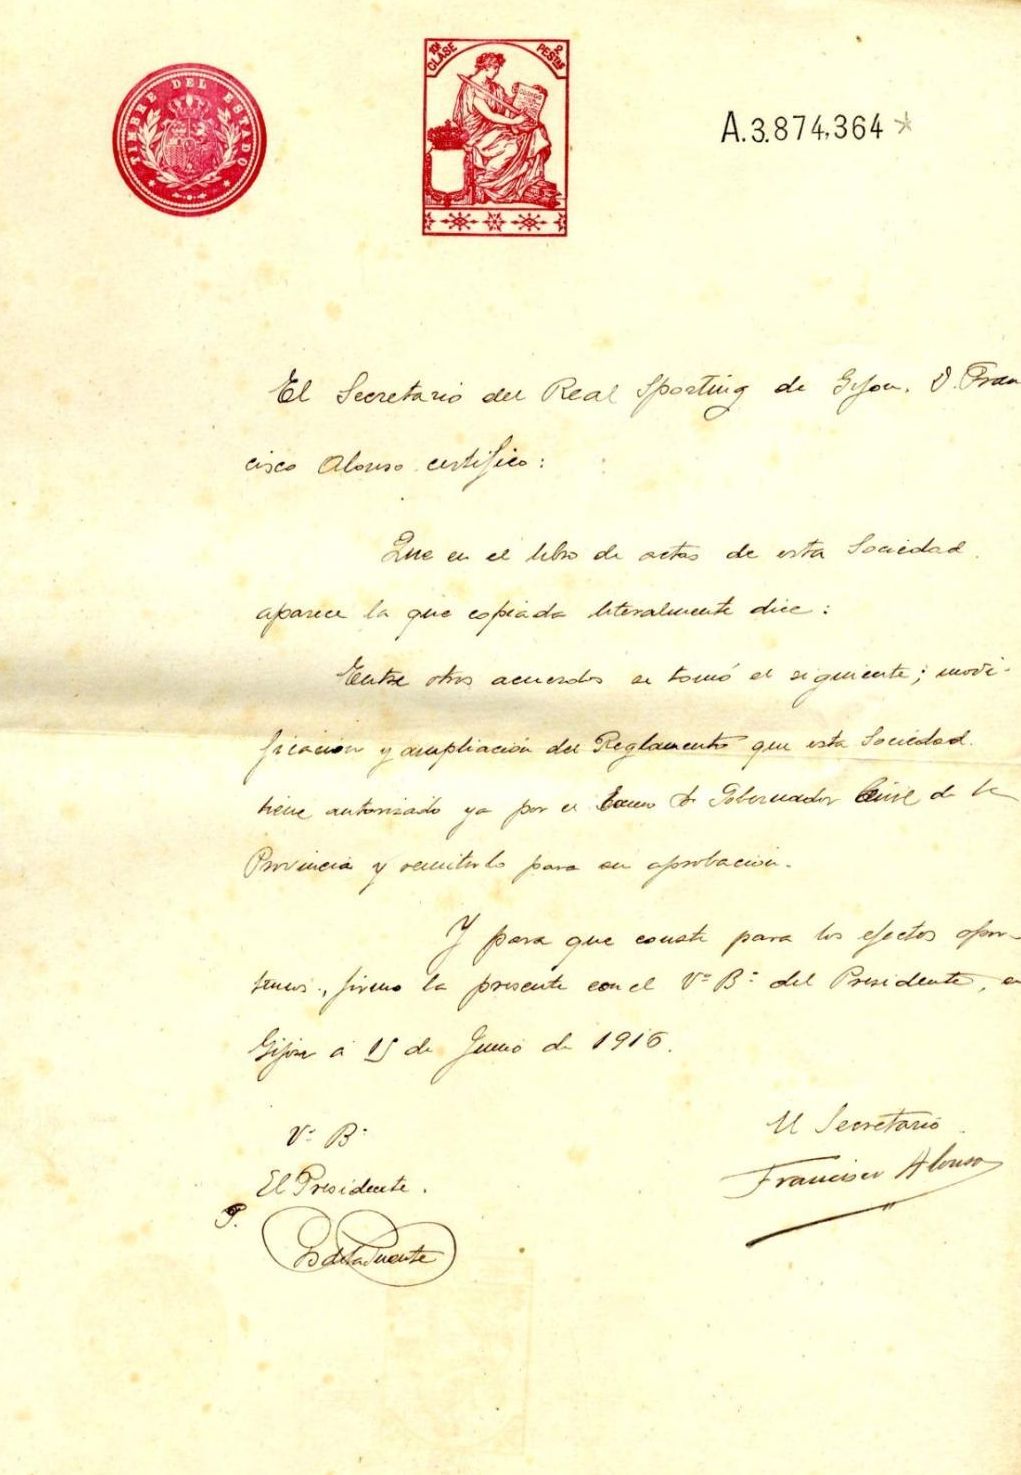 TIMBRE DEL ESTADO
10ª CLASE
2 PESTAS
CODIGO
A.3.874,364 *
El Secretario del Real Sporting de Gijon. D. Fran
cisco Alonso certifico:
Que en el libro de actas de esta Sociedad.
aparece la que copiada literalmente dice:
Entre otros acuerdos se tomó el siguiente; modi-
ficación y ampliación del Reglamento que esta Sociedad.
tiene autorizado ya por el Gobernador Civil de la
Provincia y remitirlo para su aprobación.
Y para que conste para los efectos opor-
tunos, firmo la presente con el Vº Bº del Presidente, en
Gijon á 15 de Junio de 1916.
Vº Bº
El Secretario
El Presidente.
Francisco Alonso
P.
de la Puente